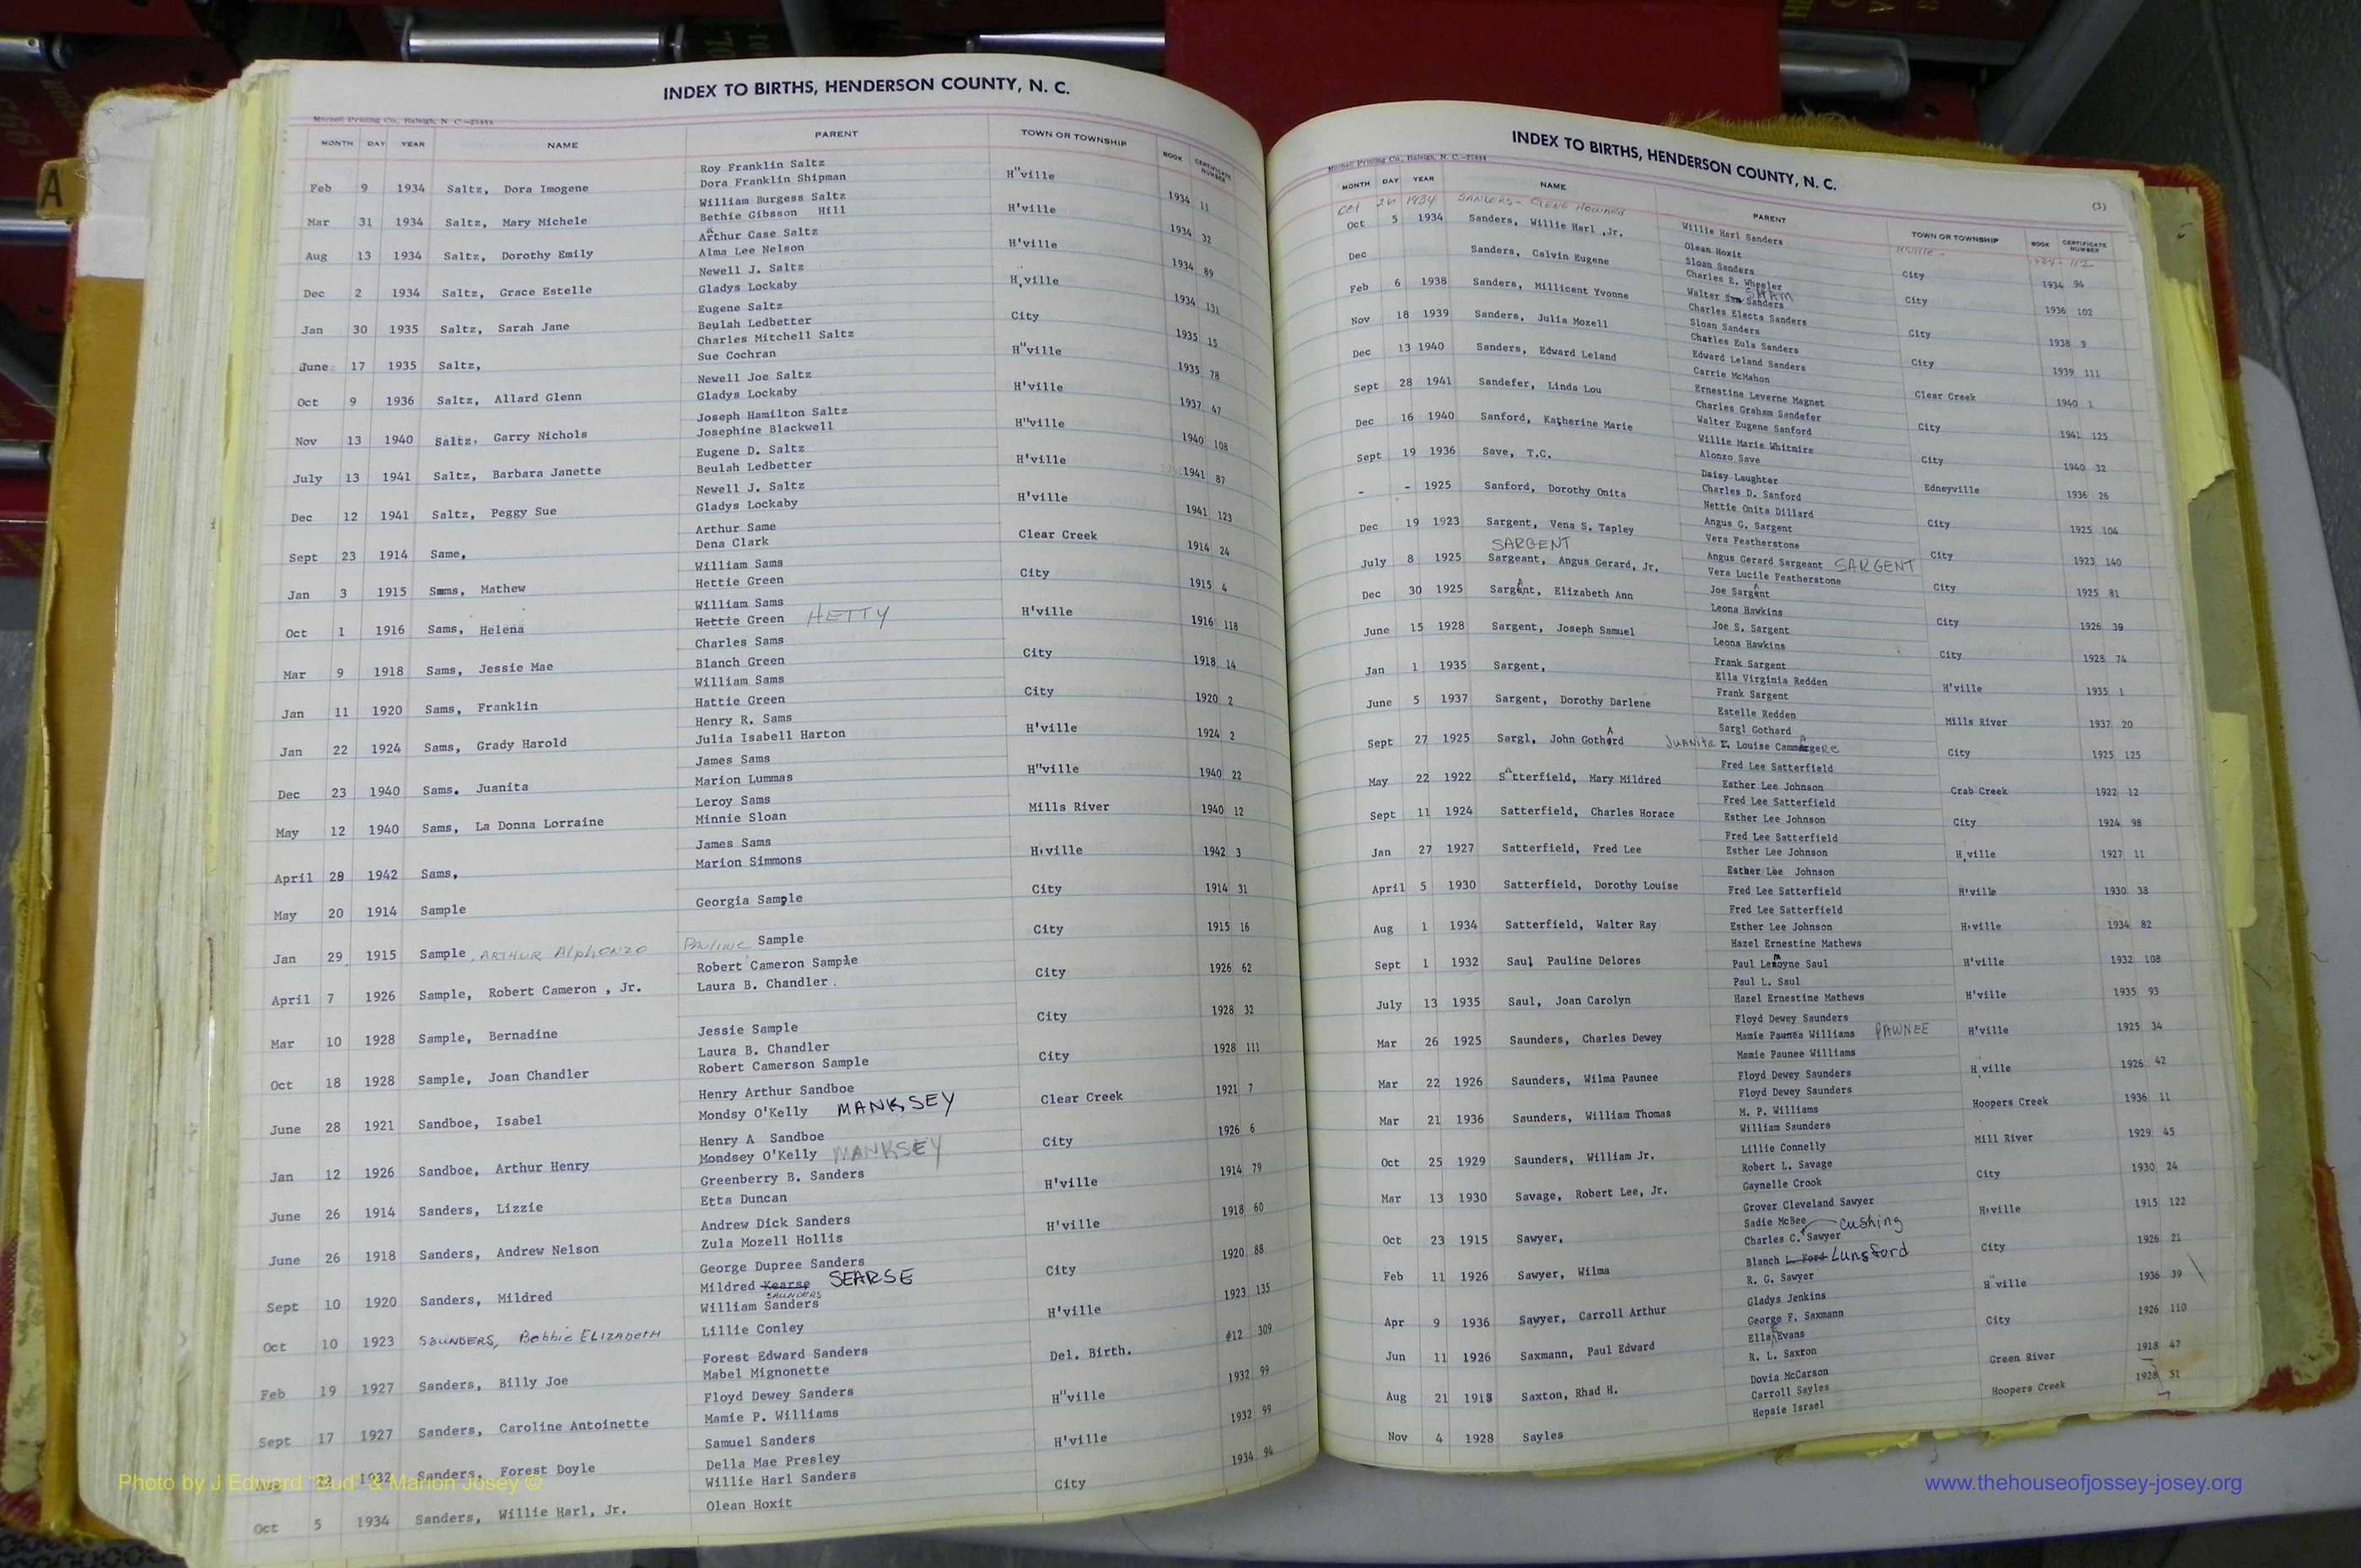 INDEX TO BIRTHS, HENDERSON COUNTY, N. C.
Mitchell Printing Co., Raleigh, N. C.—25888
MONTH DAY YEAR NAME PARENT TOWN OR TOWNSHIP BOOK CERTIFICATE NUMBER
Roy Franklin Saltz
Feb 9 1934 Saltz, Dora Imogene Dora Franklin Shipman H"ville 1934 11
William Burgess Saltz
Mar 31 1934 Saltz, Mary Michele Bethie Gibsson Hill H'ville 1934 32
Arthur Case Saltz
Aug 13 1934 Saltz, Dorothy Emily Alma Lee Nelson H'ville 1934 89
Newell J. Saltz
Dec 2 1934 Saltz, Grace Estelle Gladys Lockaby H,ville 1934 131
Eugene Saltz
Jan 30 1935 Saltz, Sarah Jane Beulah Ledbetter City 1935 15
Charles Mitchell Saltz
June 17 1935 Saltz, Sue Cochran H"ville 1935 78
Newell Joe Saltz
Oct 9 1936 Saltz, Allard Glenn Gladys Lockaby H'ville 1937 47
Joseph Hamilton Saltz
Nov 13 1940 Saltz, Garry Nichols Josephine Blackwell H"ville 1940 108
Eugene D. Saltz
July 13 1941 Saltz, Barbara Janette Beulah Ledbetter H'ville 1941 87
Newell J. Saltz
Dec 12 1941 Saltz, Peggy Sue Gladys Lockaby H'ville 1941 123
Arthur Same
Sept 23 1914 Same, Dena Clark Clear Creek 1914 24
William Sams
Jan 3 1915 Sams, Mathew Hettie Green City 1915 4
William Sams
Oct 1 1916 Sams, Helena Hettie Green HETTY H'ville 1916 118
Charles Sams
Mar 9 1918 Sams, Jessie Mae Blanch Green City 1918 14
William Sams
Jan 11 1920 Sams, Franklin Hattie Green City 1920 2
Henry R. Sams
Jan 22 1924 Sams, Grady Harold Julia Isabell Harton H'ville 1924 2
James Sams
Dec 23 1940 Sams. Juanita Marion Lummas H"ville 1940 22
Leroy Sams
May 12 1940 Sams, La Donna Lorraine Minnie Sloan Mills River 1940 12
James Sams
April 28 1942 Sams, Marion Simmons H'ville 1942 3
May 20 1914 Sample Georgia Sample City 1914 31
Jan 29 1915 Sample, ARTHUR AlphONZO PAuline Sample City 1915 16
Robert Cameron Sample
April 7 1926 Sample, Robert Cameron , Jr. Laura B. Chandler. City 1926 62
Mar 10 1928 Sample, Bernadine Jessie Sample City 1928 32
Laura B. Chandler
Oct 18 1928 Sample, Joan Chandler Robert Camerson Sample City 1928 111
Henry Arthur Sandboe
June 28 1921 Sandboe, Isabel Mondsy O'Kelly MANKSEY Clear Creek 1921 7
Henry A Sandboe
Jan 12 1926 Sandboe, Arthur Henry Mondsey O'Kelly MANKSEY City 1926 6
Greenberry B. Sanders
June 26 1914 Sanders, Lizzie Etta Duncan H'ville 1914 79
Andrew Dick Sanders
June 26 1918 Sanders, Andrew Nelson Zula Mozell Hollis H'ville 1918 60
George Dupree Sanders
Sept 10 1920 Sanders, Mildred Mildred Kearse SEARSE City 1920 88
SAUNDERS
William Sanders
Oct 10 1923 SAUNDERS, Bobbie ELIZABETH Lillie Conley H'ville 1923 135
Forest Edward Sanders
Feb 19 1927 Sanders, Billy Joe Mabel Mignonette Del. Birth. #12 309
Floyd Dewey Sanders
Sept 17 1927 Sanders, Caroline Antoinette Mamie P. Williams H"ville 1932 99
Samuel Sanders
1932 Sanders, Forest Doyle Della Mae Presley H'ville 1932 99
Willie Harl Sanders
Oct 5 1934 Sanders, Willie Harl, Jr. Olean Hoxit City 1934 94
INDEX TO BIRTHS, HENDERSON COUNTY, N. C.
Mitchell Printing Co., Raleigh, N. C.—25888
(3)
MONTH DAY YEAR NAME PARENT TOWN OR TOWNSHIP BOOK CERTIFICATE NUMBER
Oct 26 1934 SANDERS- GLENN HOWARD H'ville - 1934- 112
Willie Harl Sanders
Oct 5 1934 Sanders, Willie Harl ,Jr. Olean Hoxit City 1934 94
Sloan Sanders
Dec Sanders, Calvin Eugene Charles E. Wheeler City 1936 102
SHAM
Walter Sanders
Feb 6 1938 Sanders, Millicent Yvonne Charles Electa Sanders City 1938 9
Sloan Sanders
Nov 18 1939 Sanders, Julia Mozell Charles Eula Sanders City 1939 111
Edward Leland Sanders
Dec 13 1940 Sanders, Edward Leland Carrie McMahon Clear Creek 1940 1
Ernestine Leverne Magnet
Sept 28 1941 Sandefer, Linda Lou Charles Graham Sandefer City 1941 125
Walter Eugene Sanford
Dec 16 1940 Sanford, Katherine Marie Willie Marie Whitmire City 1940 32
Alonzo Save
Sept 19 1936 Save, T.C. Daisy Laughter Edneyville 1936 26
Charles D. Sanford
- - 1925 Sanford, Dorothy Onita Nettie Onita Dillard City 1925 104
Angus G. Sargent
Dec 19 1923 Sargent, Vena S. Tapley Vera Featherstone City 1923 140
SARGENT
Angus Gerard Sargeant SARGENT
July 8 1925 Sargeant, Angus Gerard, Jr. Vera Lucile Featherstone City 1925 81
Joe Sargent
Dec 30 1925 Sargent, Elizabeth Ann Leona Hawkins City 1926 39
Joe S. Sargent
June 15 1928 Sargent, Joseph Samuel Leona Hawkins City 1928 74
Frank Sargent
Jan 1 1935 Sargent, Ella Virginia Redden H'ville 1935 1
Frank Sargent
June 5 1937 Sargent, Dorothy Darlene Estelle Redden Mills River 1937 20
Sargl Gothard
Sept 27 1925 Sargl, John Gothard JUANita Louise City 1925 125
Fred Lee Satterfield
May 22 1922 Satterfield, Mary Mildred Esther Lee Johnson Crab Creek 1922 12
Fred Lee Satterfield
Sept 11 1924 Satterfield, Charles Horace Esther Lee Johnson City 1924 98
Fred Lee Satterfield
Jan 27 1927 Satterfield, Fred Lee Esther Lee Johnson H,ville 1927 11
Esther Lee Johnson
April 5 1930 Satterfield, Dorothy Louise Fred Lee Satterfield H'ville 1930 38
Fred Lee Satterfield
Aug 1 1934 Satterfield, Walter Ray Esther Lee Johnson H'ville 1934 82
Hazel Ernestine Mathews
Sept 1 1932 Saul, Pauline Delores Paul Lemoyne Saul H'ville 1932 108
Paul L. Saul
July 13 1935 Saul, Joan Carolyn Hazel Ernestine Mathews H'ville 1935 93
Floyd Dewey Saunders
Mar 26 1925 Saunders, Charles Dewey Mamie Paunea Williams PAWNEE H'ville 1925 34
Mamie Paunee Williams
Mar 22 1926 Saunders, Wilma Paunee Floyd Dewey Saunders H,ville 1926 42
Floyd Dewey Saunders
Mar 21 1936 Saunders, William Thomas M. P. Williams Hoopers Creek 1936 11
William Saunders
Oct 25 1929 Saunders, William Jr. Lillie Connelly Mill River 1929 45
Robert L. Savage
Mar 13 1930 Savage, Robert Lee, Jr. Gaynelle Crook City 1930 24
Grover Cleveland Sawyer
Oct 23 1915 Sawyer, Sadie McBee H'ville 1915 122
cushing
Charles C. Sawyer
Feb 11 1926 Sawyer, Wilma Blanch L. Ford Lunsford City 1926 21
R. G. Sawyer
Apr 9 1936 Sawyer, Carroll Arthur Gladys Jenkins H"ville 1936 39
George F. Saxmann
Jun 11 1926 Saxmann, Paul Edward Ella Evans City 1926 110
R. L. Saxton
Aug 21 1918 Saxton, Rhad H. Dovia McCarson Green River 1918 47
Carroll Sayles
Nov 4 1928 Sayles Hepsie Israel Hoopers Creek 1928 51
Photo by J Edward "Bud" & Marion Josey ©
www.thehouseofjossey-josey.org
A